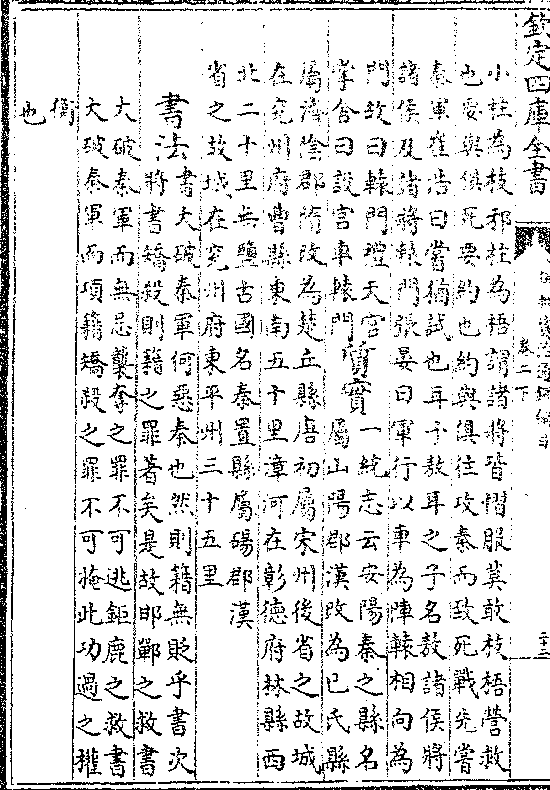 欽定四庫全書
卷二下
小柱為枝邪柱為梧謂諸將皆慴服莫敢枝梧營救
也要與俱死要約也約與俱往攻秦而致死戰先嘗
秦軍崔浩曰嘗猶試也耳子敖耳之子名敖諸侯將
諸侯及諸將轅門張晏曰軍行以車為陣轅相向為
門故曰轅門禮天官
掌舍曰設言車轅門
質實
一統志云安陽秦之縣名
屬山陽郡漢改為已氏縣
屬濟陰郡隋改為楚丘縣唐初屬宋州後省之故城
在兗州府曹縣東南五十里漳河在彰德府林縣西
北二十里無鹽古國名秦置縣屬碭郡漢
省之故城在兗州府東平州三十五里
書法
書大破秦軍何惡秦也然則籍無貶乎書次
將書矯殺則籍之罪著矣是故邯鄲之救書
大破秦軍而無忌襲奪之罪不可逃鉅鹿之救書
大破秦軍而項籍矯殺之罪不可掩此功過之權
衡
也